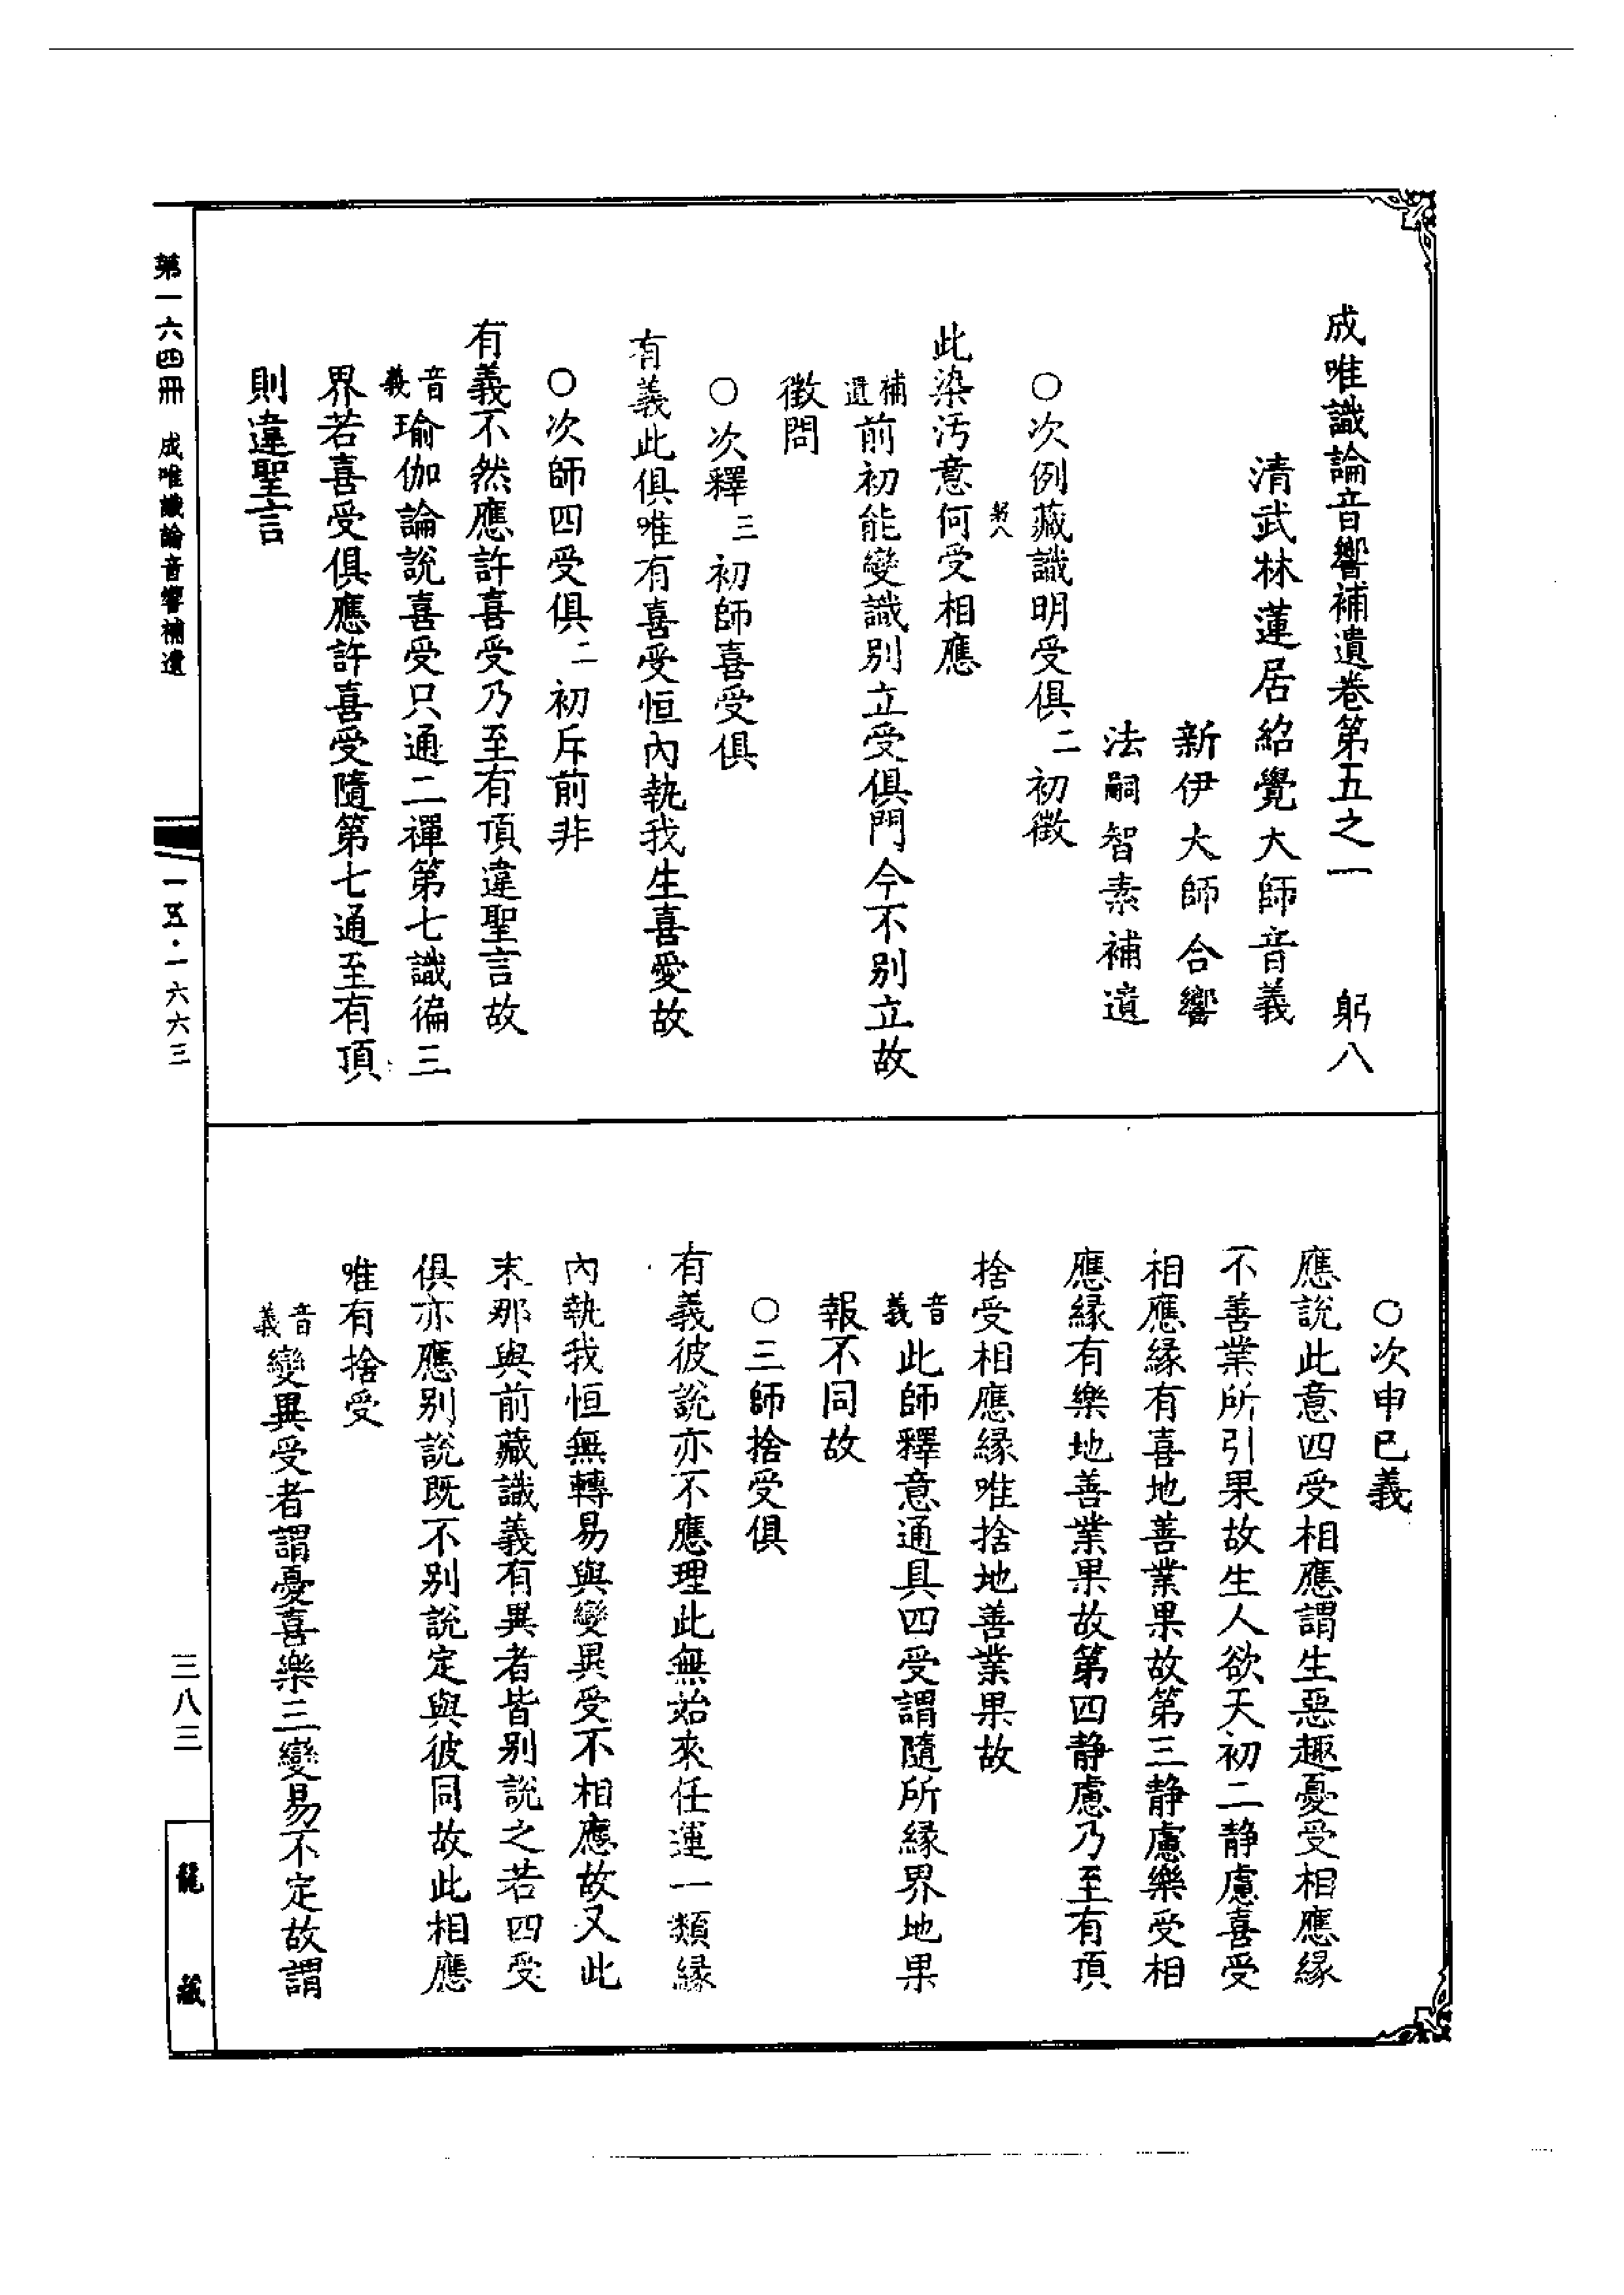 成唯識論音響補遺卷第五之一　躬八
清武林蓮居紹覺大師音義
新伊大師合響
法嗣智素補遺
○次例藏識明受俱二初徵
躬八
此染污意何受相應
補遺前初能變識別立受俱門今不別立故
徵問
○次釋三初師喜受俱
有義此俱唯有喜受恒內執我生喜愛故
○次師四受俱二初斥前非
有義不然應許喜受乃至有頂違聖言故
音義瑜伽論說喜受只通二禪第七識徧三
界若喜受俱應許喜受隨第七通至有頂
則違聖言
○次申已義
應說此意四受相應謂生惡趣憂受相應緣
不善業所引果故生人欲天初二靜慮喜受
相應緣有喜地善業果故第三靜慮樂受相
應緣有樂地善業果故第四靜慮乃至有頂
捨受相應緣唯捨地善業果故
音義此師釋意通具四受謂隨所緣界地果
報不同故
○三師捨受俱
有義彼說亦不應理此無始來任運一類緣
內執我恒無轉易與變異受不相應故又此
末那與前藏識義有異者皆別說之若四受
俱亦應別說既不別說定與彼同故此相應
唯有捨受
音義變異受者謂憂喜樂三變易不定故謂
第一六四冊　成唯識論音響補遺
一五·一六六三
三八三
龍藏